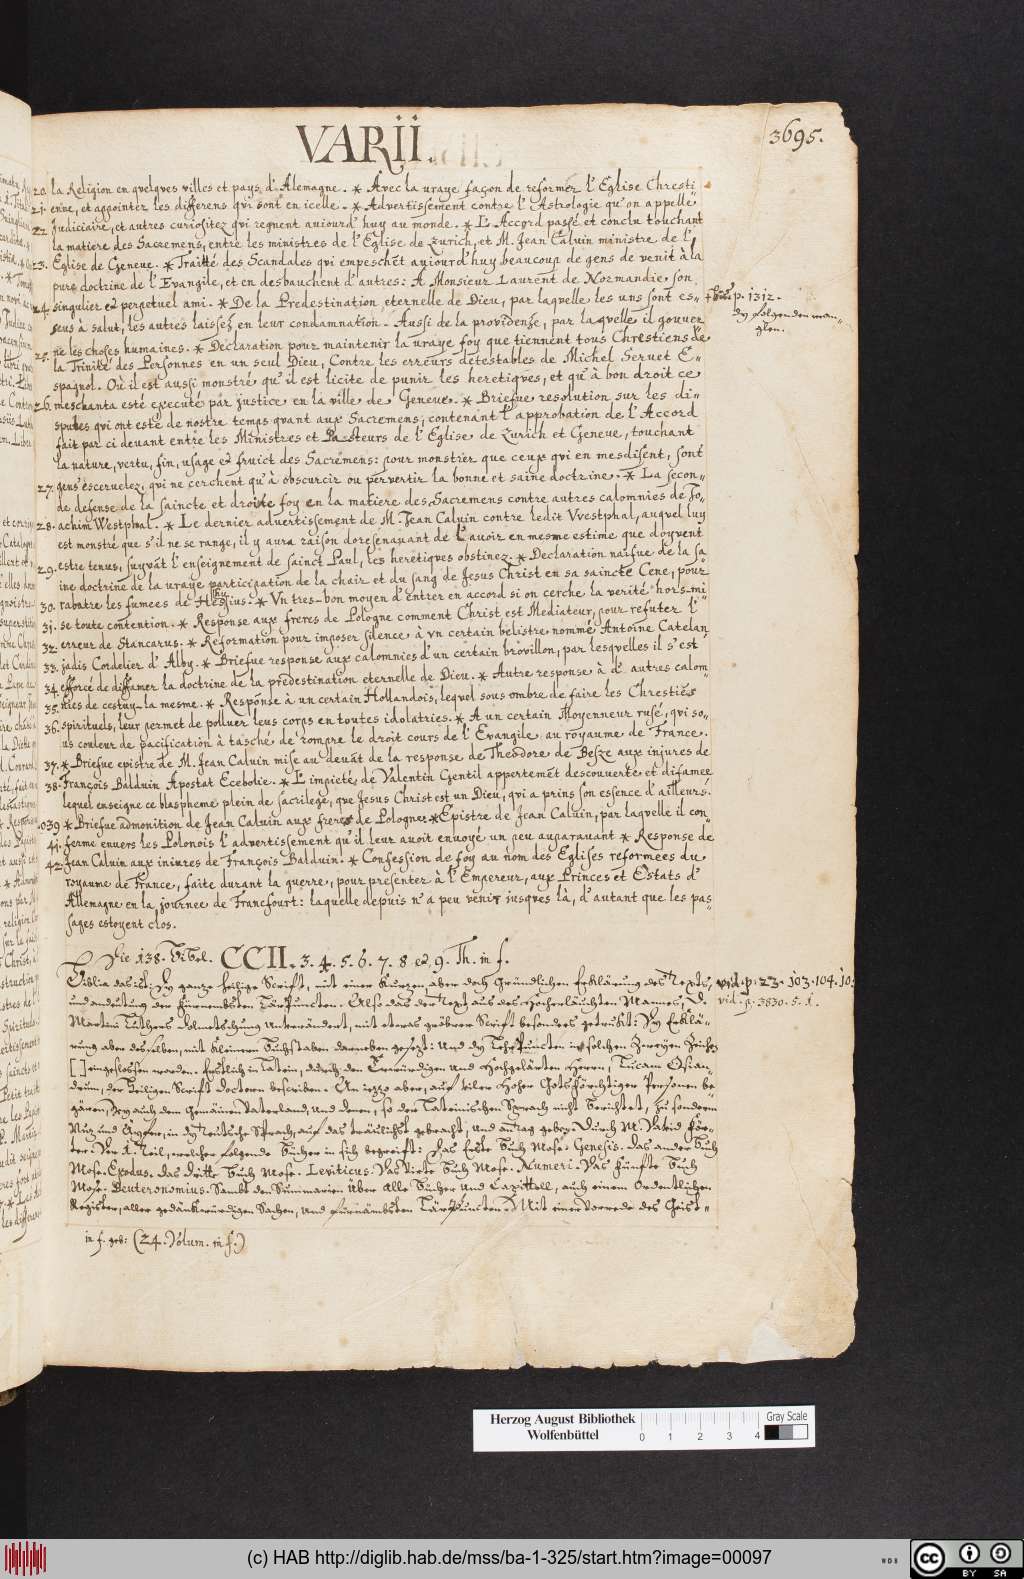 VARII.
3695.
20. la Religion en quelques villes et pays d'Alemagne. * Avec la uraye façon de reformer l'Eglise Chresti
21. enne, et appointer les differens qui sont en icelle. * Advertissement contre l'Astrologie qu'on appelle
22. Judiciaire, et autres curiositez qui regnent auiourd'huy au monde. * L'Accord passé et conclu touchant
la matiere des Sacremens, entre les ministres de l'Eglise de Zurich, et M. Jean Calvin ministre de l'
23. Eglise de Geneve. * Traitté des Scandales qui empeschēt auiourd'huy beaucoup de gens de venir à la
pure doctrine de l'Evangile, et en desbauchent d'autres: A Monsieur Laurent de Normandie son
24. singulier et perpetuel ami. * De la Predestination eternelle de Dieu, par laquelle les uns sont es-
leus à salut, les autres laissez en leur condamnation. Aussi de la providenze, par laquelle il gouver
p. 1312.
25. ne les choses humaines. * Declaration pour maintenir la uraye foy que tiennent tous Chrestiens de
la Trinité des Personnes en un seul Dieu, Contre les erreurs detestables de Michel Servet E-
spagnol. Où il est aussi monstré qu'il est licite de punir les heretiques, et qu'à bon droit ce
26. meschanta esté executé par justice en la ville de Geneve. * Briefue resolution sur les di-
sputes qui ont esté de nostre temps quant aux Sacremens, contenant l'approbation de l'Accord
fait par ci devant entre les Ministres et Pasteurs de l'Eglise de Zurich et Geneve, touchant
la nature, vertu, fin, usage et fruict des Sacremens: pour monstrer que ceux qui en mesdisent, sont
27. gens escervelez, qui ne cerchent qu'à obscurcir ou pervertir la bonne et saine doctrine. * La secon-
de defense de la saincte et droite foy en la matiere des Sacremens contre autres calomnies de Jo-
28. achim Westphal. * Le dernier advertissement de M. Jean Calvin contre ledit Westphal, auquel luy
est monstré que s'il ne se range, il y aura raison doresenavant de l'avoir en mesme estime que doyvent
29. estre tenus, suyvāt l'enseignement de sainct Paul, les heretiques obstinez. * Declaration naifue de la sa
ine doctrine de la uraye participation de la chair et du sang de Jesus Christ en sa saincte Cene, pour
30. rabatre les fumees de Heshusius. * Vn tres-bon moyen d'entrer en accord si on cerche la verité hors-mi
31. se toute contention. * Response aux freres de Pologne comment Christ est Mediateur, pour refuter l'
32. erreur de Stancarus. * Reformation pour imposer silence à vn certain belistre nommé Antoine Catelan
33. jadis Cordelier d'Alby. * Briefue response aux calomnies d'un certain brovillon, par lesquelles il s'est
34. efforcé de diffamer la doctrine de la predestination eternelle de Dieu. * Autre response à d'autres calom
35. nies de cestuy-la mesme. * Response à un certain Hollandois, lequel sous ombre de faire les Chrestiēs
36. spirituels, leur permet de polluer leus corps en toutes idolatries. * A un certain Moyenneur rusé, qui so-
us couleur de pacification à tasché de rompre le droit cours de l'Evangile au royaume de France.
37. * Briefue epistre de M. Jean Calvin mise au devāt de la response de Theodore de Besze aux injures de
38. François Balduin Apostat Ecebolie. * L'impieté de Valentin Gentil appertemēt descouverte et difamee
lequel enseigne ce blaspheme plein de sacrilege, que Jesus Christ est un Dieu, qui a prins son essence d'ailleurs.
039 * Briefue admonition de Jean Calvin aux freres de Pologne. * Epistre de Jean Calvin, par laquelle il con-
41. ferme envers les Polonois l'advertissement qu'il leur avoit envoyé un peu auparavant * Response de
42. Jean Calvin aux iniures de François Balduin. * Confession de foy au nom des Eglises reformees du
royaume de France, faite durant la guerre, pour presenter à l'Empereur, aux Princes et Estats d'
Allemagne en la journee de Francfourt: laquelle depuis n'a peu venir iusques là, d'autant que les pas-
sages estoyent clos.
Die 138. Bibel. CCII. 3. 4. 5. 6. 7. 8 et 9. Th. in f.
Biblia das ist: Dy gantze heilige Schrift, mit einer kurtzen aber doch Gründlichen Erklärung des Texts,
vid. p. 23. 103. 104. 10
und andeutung der fürnembsten Lärpuncten. Also das der Text aus des Hocherläuchten Mannes, D.
vid. p. 3830. 5. 1.
Martini Luthers Dolmetschung unverändert, mit etwas gröbrer Schrift besonders getrukt: Dy Erklä-
rung aber desselben, mit kleinern Buchstaben darneben gesezt: Und dy Lehrpuncten in solchen Zeichen
[ ] eingeschlossen worden. Erstlich in Latein, durch den Ehrwürdigen und Hochgelärten Herrn, Lucam Osian-
drum, der Heiligen Schrift Doctorn beschriben. An iezzo aber, auf viler Hoher Gotsförchtiger Personen be
gären, wy auch dem Gemäinen Vaterland, und denen, so der Lateinischen Sprach nicht berichtet, zu sondern
Nuz und Wolfar, in dy Teütsche Sprach, auf das träulichst gebracht, und an Tag geben. Durch M. David För-
ter. Der 1. Teil, welcher folgende Bücher in sich begreift: Das Erste Buch Mose. Genesis. Das ander Buch
Mose. Exodus. das Dritte Buch Mose. Leviticus. Das Vierte Buch Mose. Numeri. Das Fünfte Buch
Mose. Deuteronomius. Sambt den Summarien über alle Bücher und Capittell, auch einem Ordentlichen
Register, aller gedänkwürdigen Sachen, und fürnämbsten Lärpuncten. Mit einer Vorrede des Geist-
in f. geb: (24. Volum. in f.)
Herzog August Bibliothek
Wolfenbüttel
0 1 2 3 4
Gray Scale
(c) HAB http://diglib.hab.de/mss/ba-1-325/start.htm?image=00097
WDB
cc BY SA